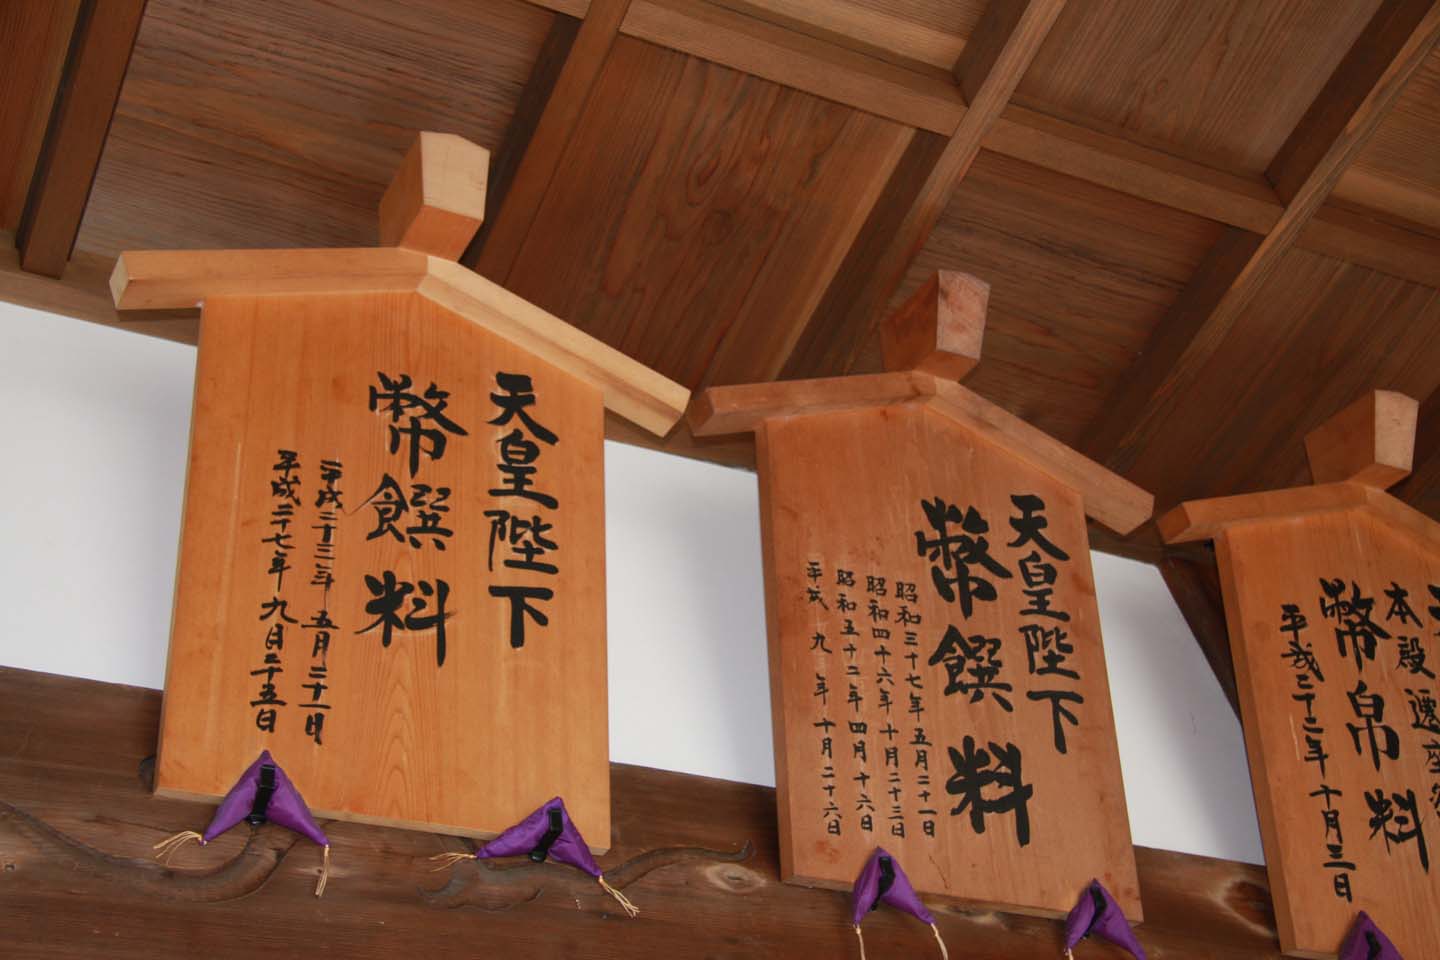 天皇陛下
幣饌料
平成二十三年 五月二十一日
平成二十七年 九月二十五日
天皇陛下
幣饌料
昭和三十七年 五月二十一日
昭和四十六年 十月二十三日
昭和五十二年 四月十六日
平成 九 年 十月二十六日
本殿遷座
幣帛料
平成二十二年 十月三日